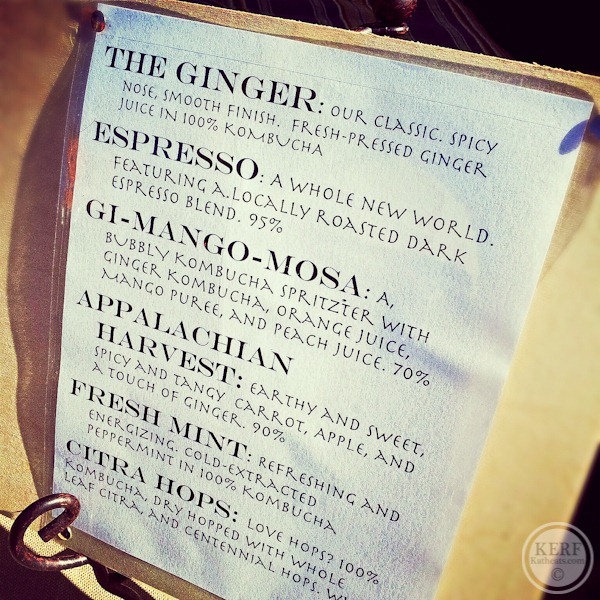 THE GINGER: OUR CLASSIC. SPICY
NOSE, SMOOTH FINISH. FRESH-PRESSED GINGER
JUICE IN 100% KOMBUCHA
ESPRESSO: A WHOLE NEW WORLD.
FEATURING A LOCALLY ROASTED DARK
ESPRESSO BLEND. 95%
GI-MANGO-MOSA: A,
BUBBLY KOMBUCHA SPRITZIER WITH
GINGER KOMBUCHA, ORANGE JUICE,
MANGO PUREE, AND PEACH JUICE. 70%
APPALACHIAN
HARVEST: EARTHY AND SWEET,
SPICY AND TANGY CARROT, APPLE, AND
A TOUCH OF GINGER. 90%
FRESH MINT: REFRESHING AND
ENERGIZING. COLD-EXTRACTED
PEPPERMINT IN 100% KOMBUCHA
CITRA HOPS: LOVE HOPS? 100%
KOMBUCHA, DRY HOPPED WITH WHOLE
LEAF CITRA, AND CENTENNIAL HOPS.
KERF
Katheats.com
©